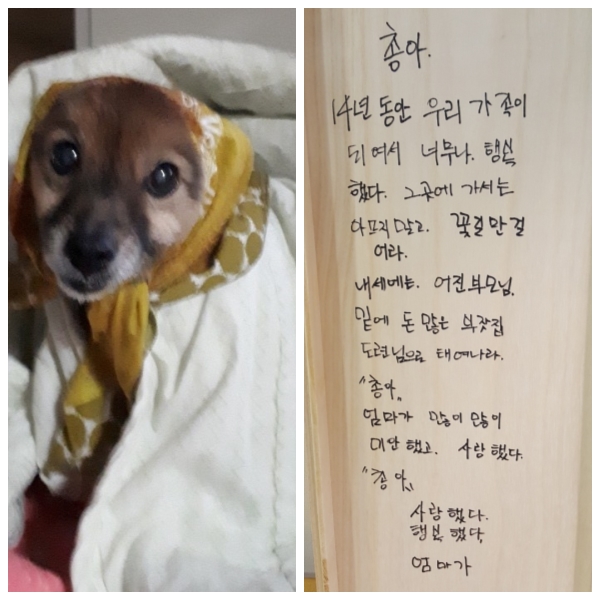 총아.
14년 동안 우리 가족이
되여서 너무나. 행복
했다. 그곳에 가서는
아프지말고. 꽃길만 걸
어라.
내세에는. 어진부모님.
밑에 돈 많은 부잣집
도련님으로 태여나라.
"총아"
엄마가 많이 많이
미안했고. 사랑했다.
"총아"
사랑했다.
행복했다,
엄마가